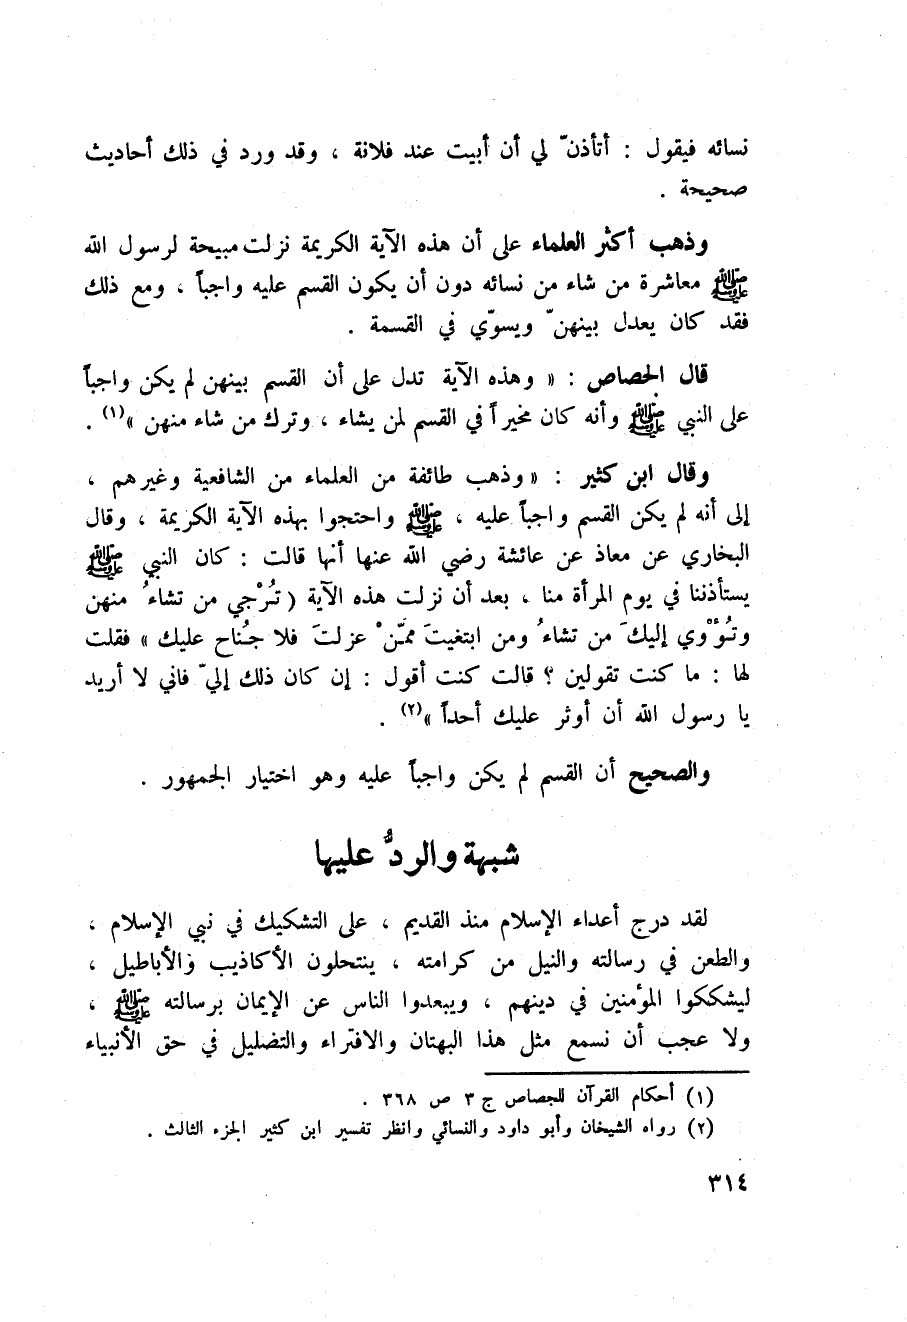 نسائه فيقول : أتأذنّ لي أن أبيت عند فلانة ، وقد ورد في ذلك أحاديث
صحيحة .
وذهب أكثر العلماء على أن هذه الآية الكريمة نزلت مبيحة لرسول الله
ﷺ معاشرة من شاء من نسائه دون أن يكون القسم عليه واجباً ، ومع ذلك
فقد كان يعدل بينهنّ ويسوّي في القسمة .
قال الجصاص : « وهذه الآية تدل على أن القسم بينهن لم يكن واجباً
على النبي ﷺ وأنه كان مخيراً في القسم لمن يشاء ، وترك من شاء منهن »(١) .
وقال ابن كثير : « وذهب طائفة من العلماء من الشافعية وغيرهم ،
إلى أنه لم يكن القسم واجباً عليه ، ﷺ واحتجوا بهذه الآية الكريمة ، وقال
البخاري عن معاذ عن عائشة رضي الله عنها أنها قالت : كان النبي ﷺ
يستأذننا في يوم المرأة منا ، بعد أن نزلت هذه الآية ( تُرْجي من تشاءُ منهن
وتُؤْوي إليكَ من تشاءُ ومن ابتغيتَ ممَّنْ عزلتَ فلا جُناح عليك » فقلت
لها : ما كنت تقولين ؟ قالت كنت أقول : إن كان ذلك إليّ فاني لا أريد
يا رسول الله أن أوثر عليك أحداً »(٢) .
والصحيح أن القسم لم يكن واجباً عليه وهو اختيار الجمهور .
شبهة والردُّ عليها
لقد درج أعداء الإسلام منذ القديم ، على التشكيك في نبي الإسلام ،
والطعن في رسالته والنيل من كرامته ، ينتحلون الأكاذيب والأباطيل ،
ليشككوا المؤمنين في دينهم ، ويبعدوا الناس عن الإيمان برسالته ﷺ ،
ولا عجب أن نسمع مثل هذا البهتان والافتراء والتضليل في حق الأنبياء
(١) أحكام القرآن للجصاص ج ٣ ص ٣٦٨ .
(٢) رواه الشيخان وأبو داود والنسائي وانظر تفسير ابن كثير الجزء الثالث .
٣١٤